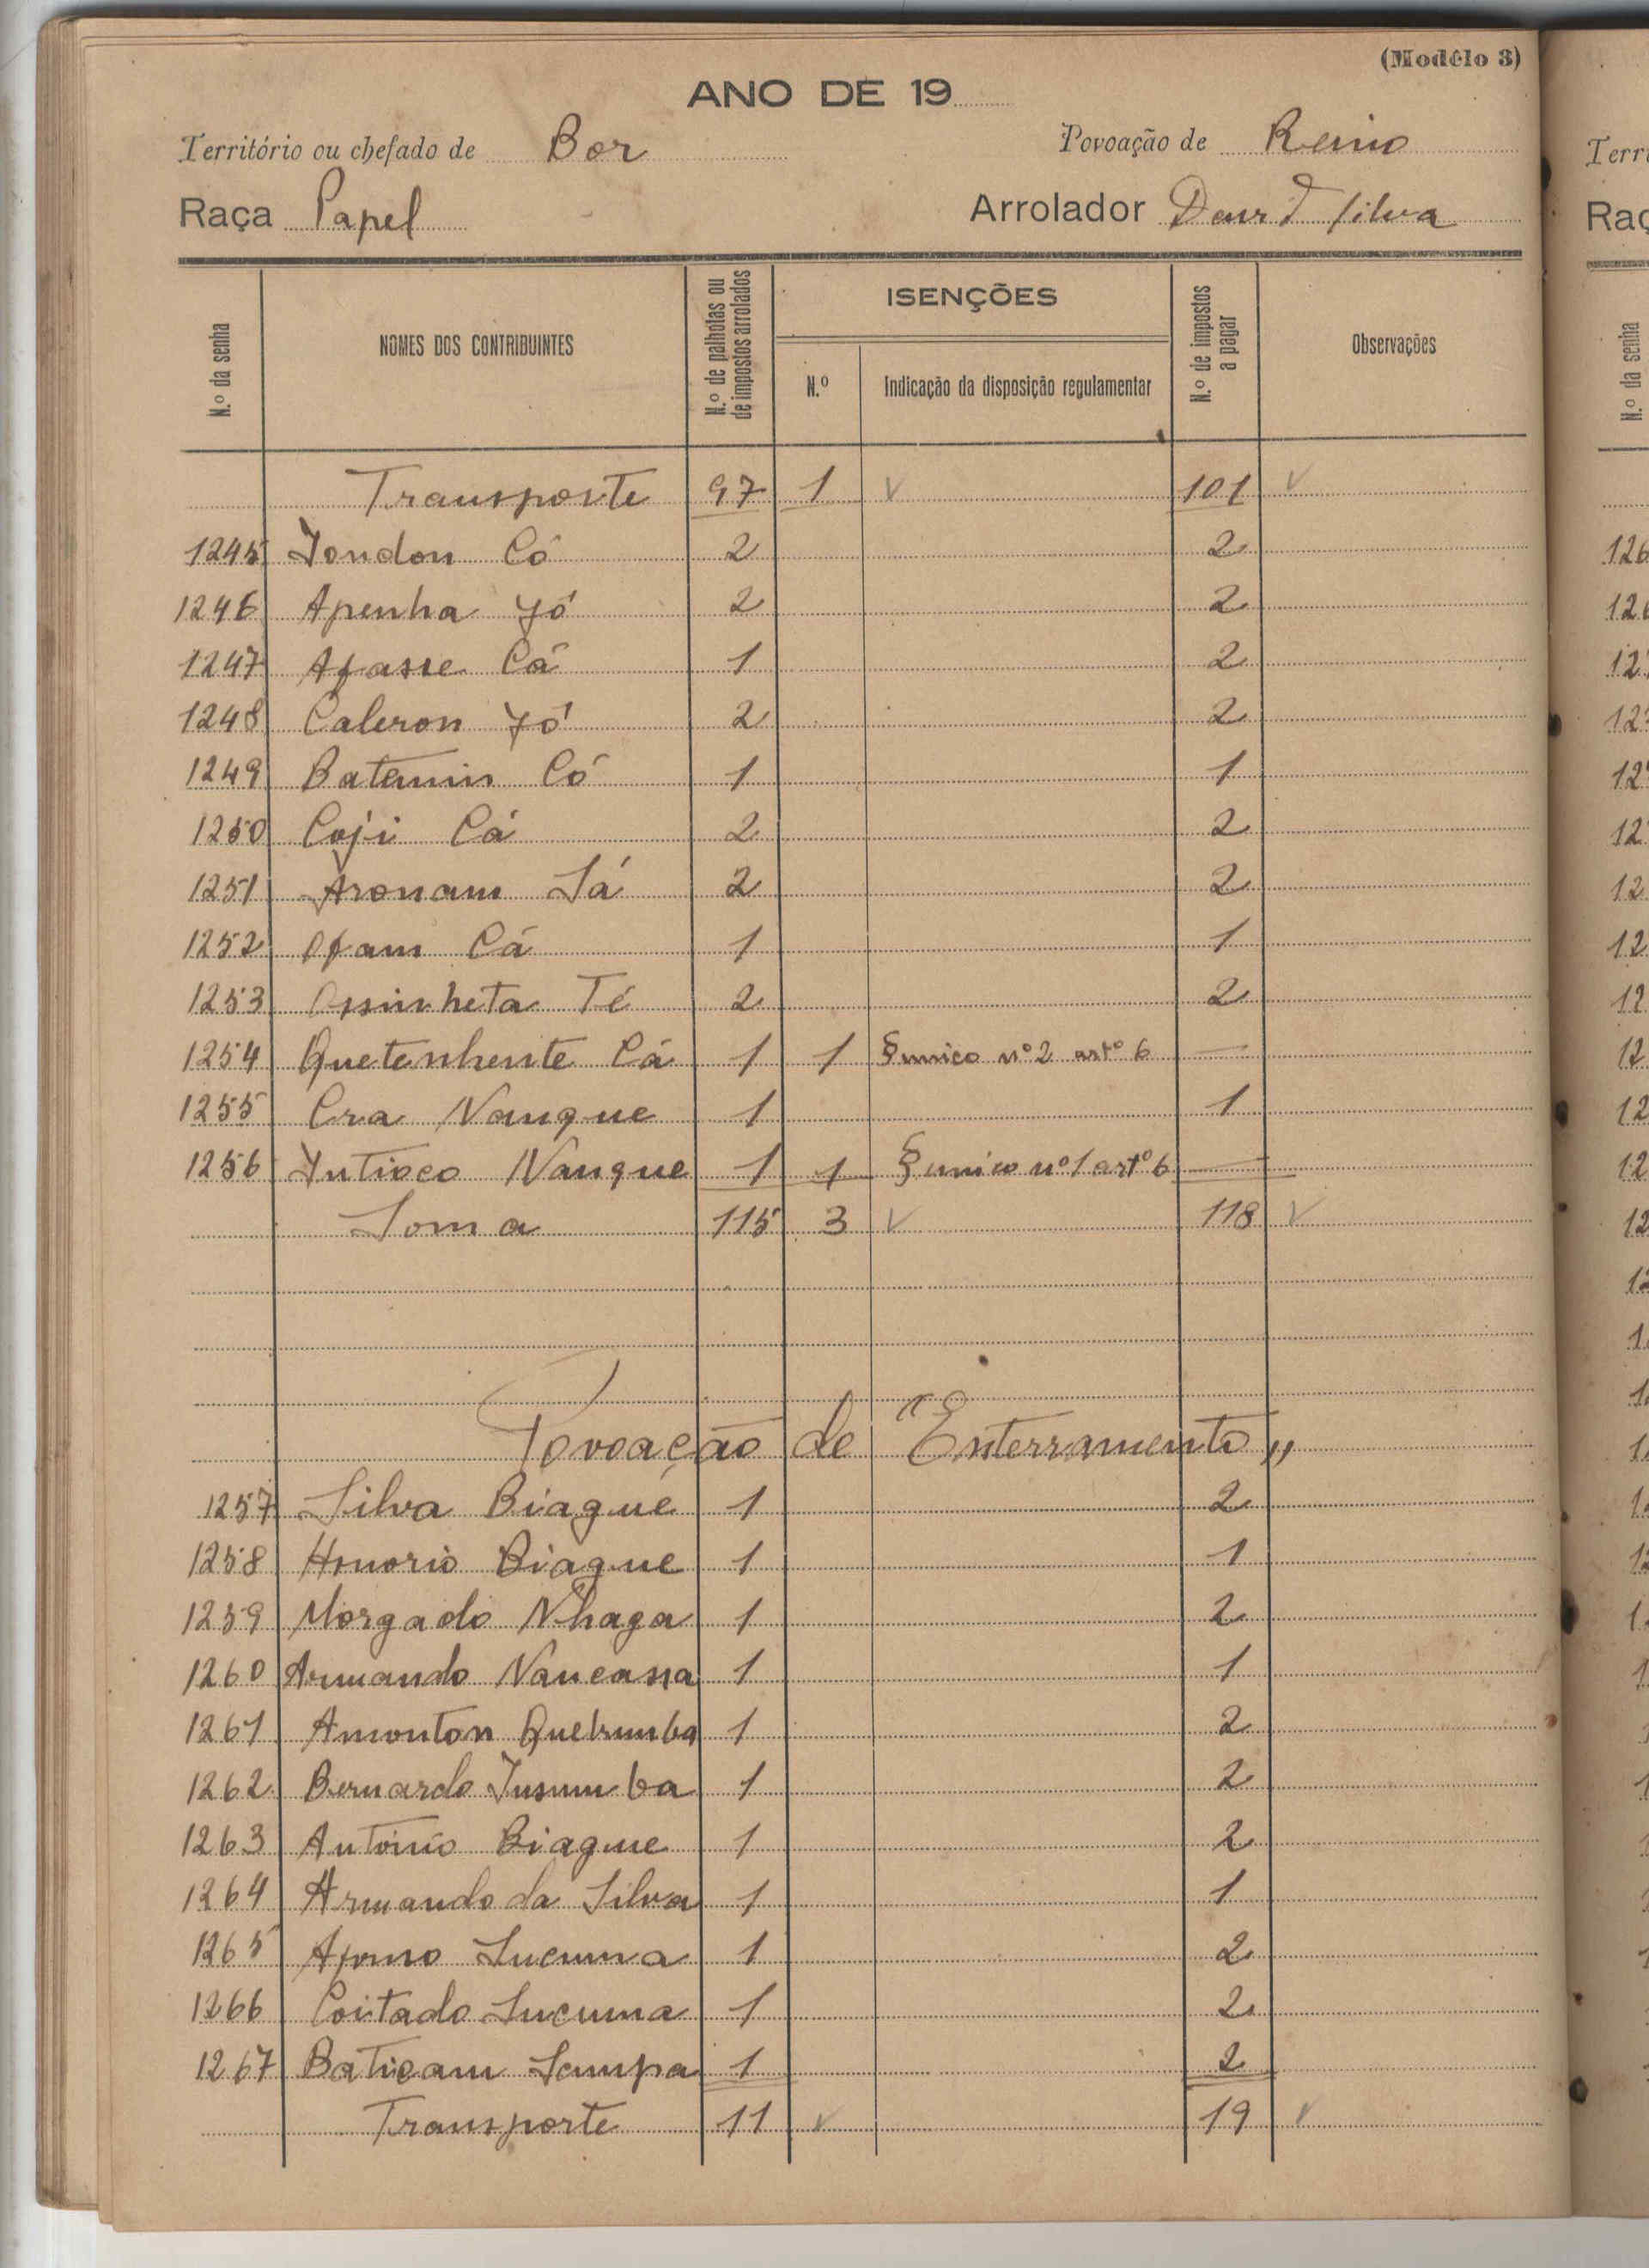 (Modêlo 3)
ANO DE 19
Território ou chefado de Bor Povoação de Reino
Raça Papel Arrolador David Silva
N.º da senha NOMES DOS CONTRIBUINTES N.º de palhotas ou de impostos arrolados ISENÇÕES N.º Indicação da disposição regulamentar N.º de impostos a pagar Observações
Transporte 97 1 v 101 v
1245 Có 2 2
1246 Apenha Yó 2 2
1247 Afasse Cá 1 2
1248 Caleron Yó 2 2
1249 Batamin Có 1 1
1250 Coji Cá 2 2
1251 Aronam Sá 2 2
1252 Ofam Cá 1 1
1253 Ossinheta Té 2 2
1254 Quetenhente Cá 1 1 § unico nº 2 artº 6 —
1255 Cra Nanque 1 1
1256 Nanque 1 1 § unico nº 1 artº 6 —
Soma 115 3 v 118 v
Povoação de Enterramento „
1257 Silva Biague 1 2
1258 Honorio Biague 1 1
1259 Morgado Nhaga 1 2
1260 Armando Nancassa 1 1
1261 Amonton Quebumba 1 2
1262 Bernardo Jusumba 1 2
1263 António Biague 1 2
1264 Armando da Silva 1 1
1265 Afonso Sucuma 1 2
1266 Coitado Sucuma 1 2
1267 Baticam Sampa 1 2
Transporte 11 v 19 v
Terri
Raç
N.º da senha